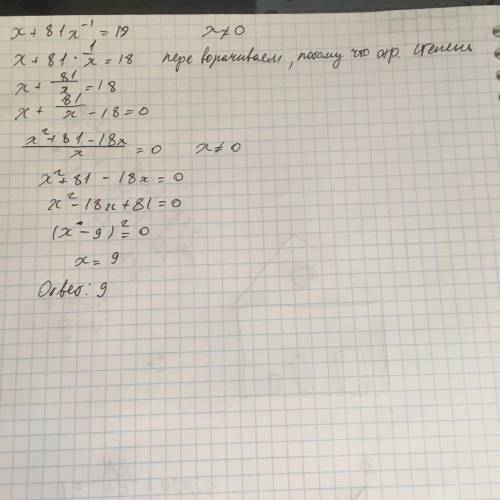 x + 81x⁻¹ = 19 x ≠ 0
x + 81 · 1/x = 18 переворачиваем, потому что отр. степень
x + 81/x = 18
x + 81/x - 18 = 0
(x² + 81 - 18x)/x = 0 x ≠ 0
x² + 81 - 18x = 0
x² - 18x + 81 = 0
(x - 9)² = 0
x = 9
Ответ: 9